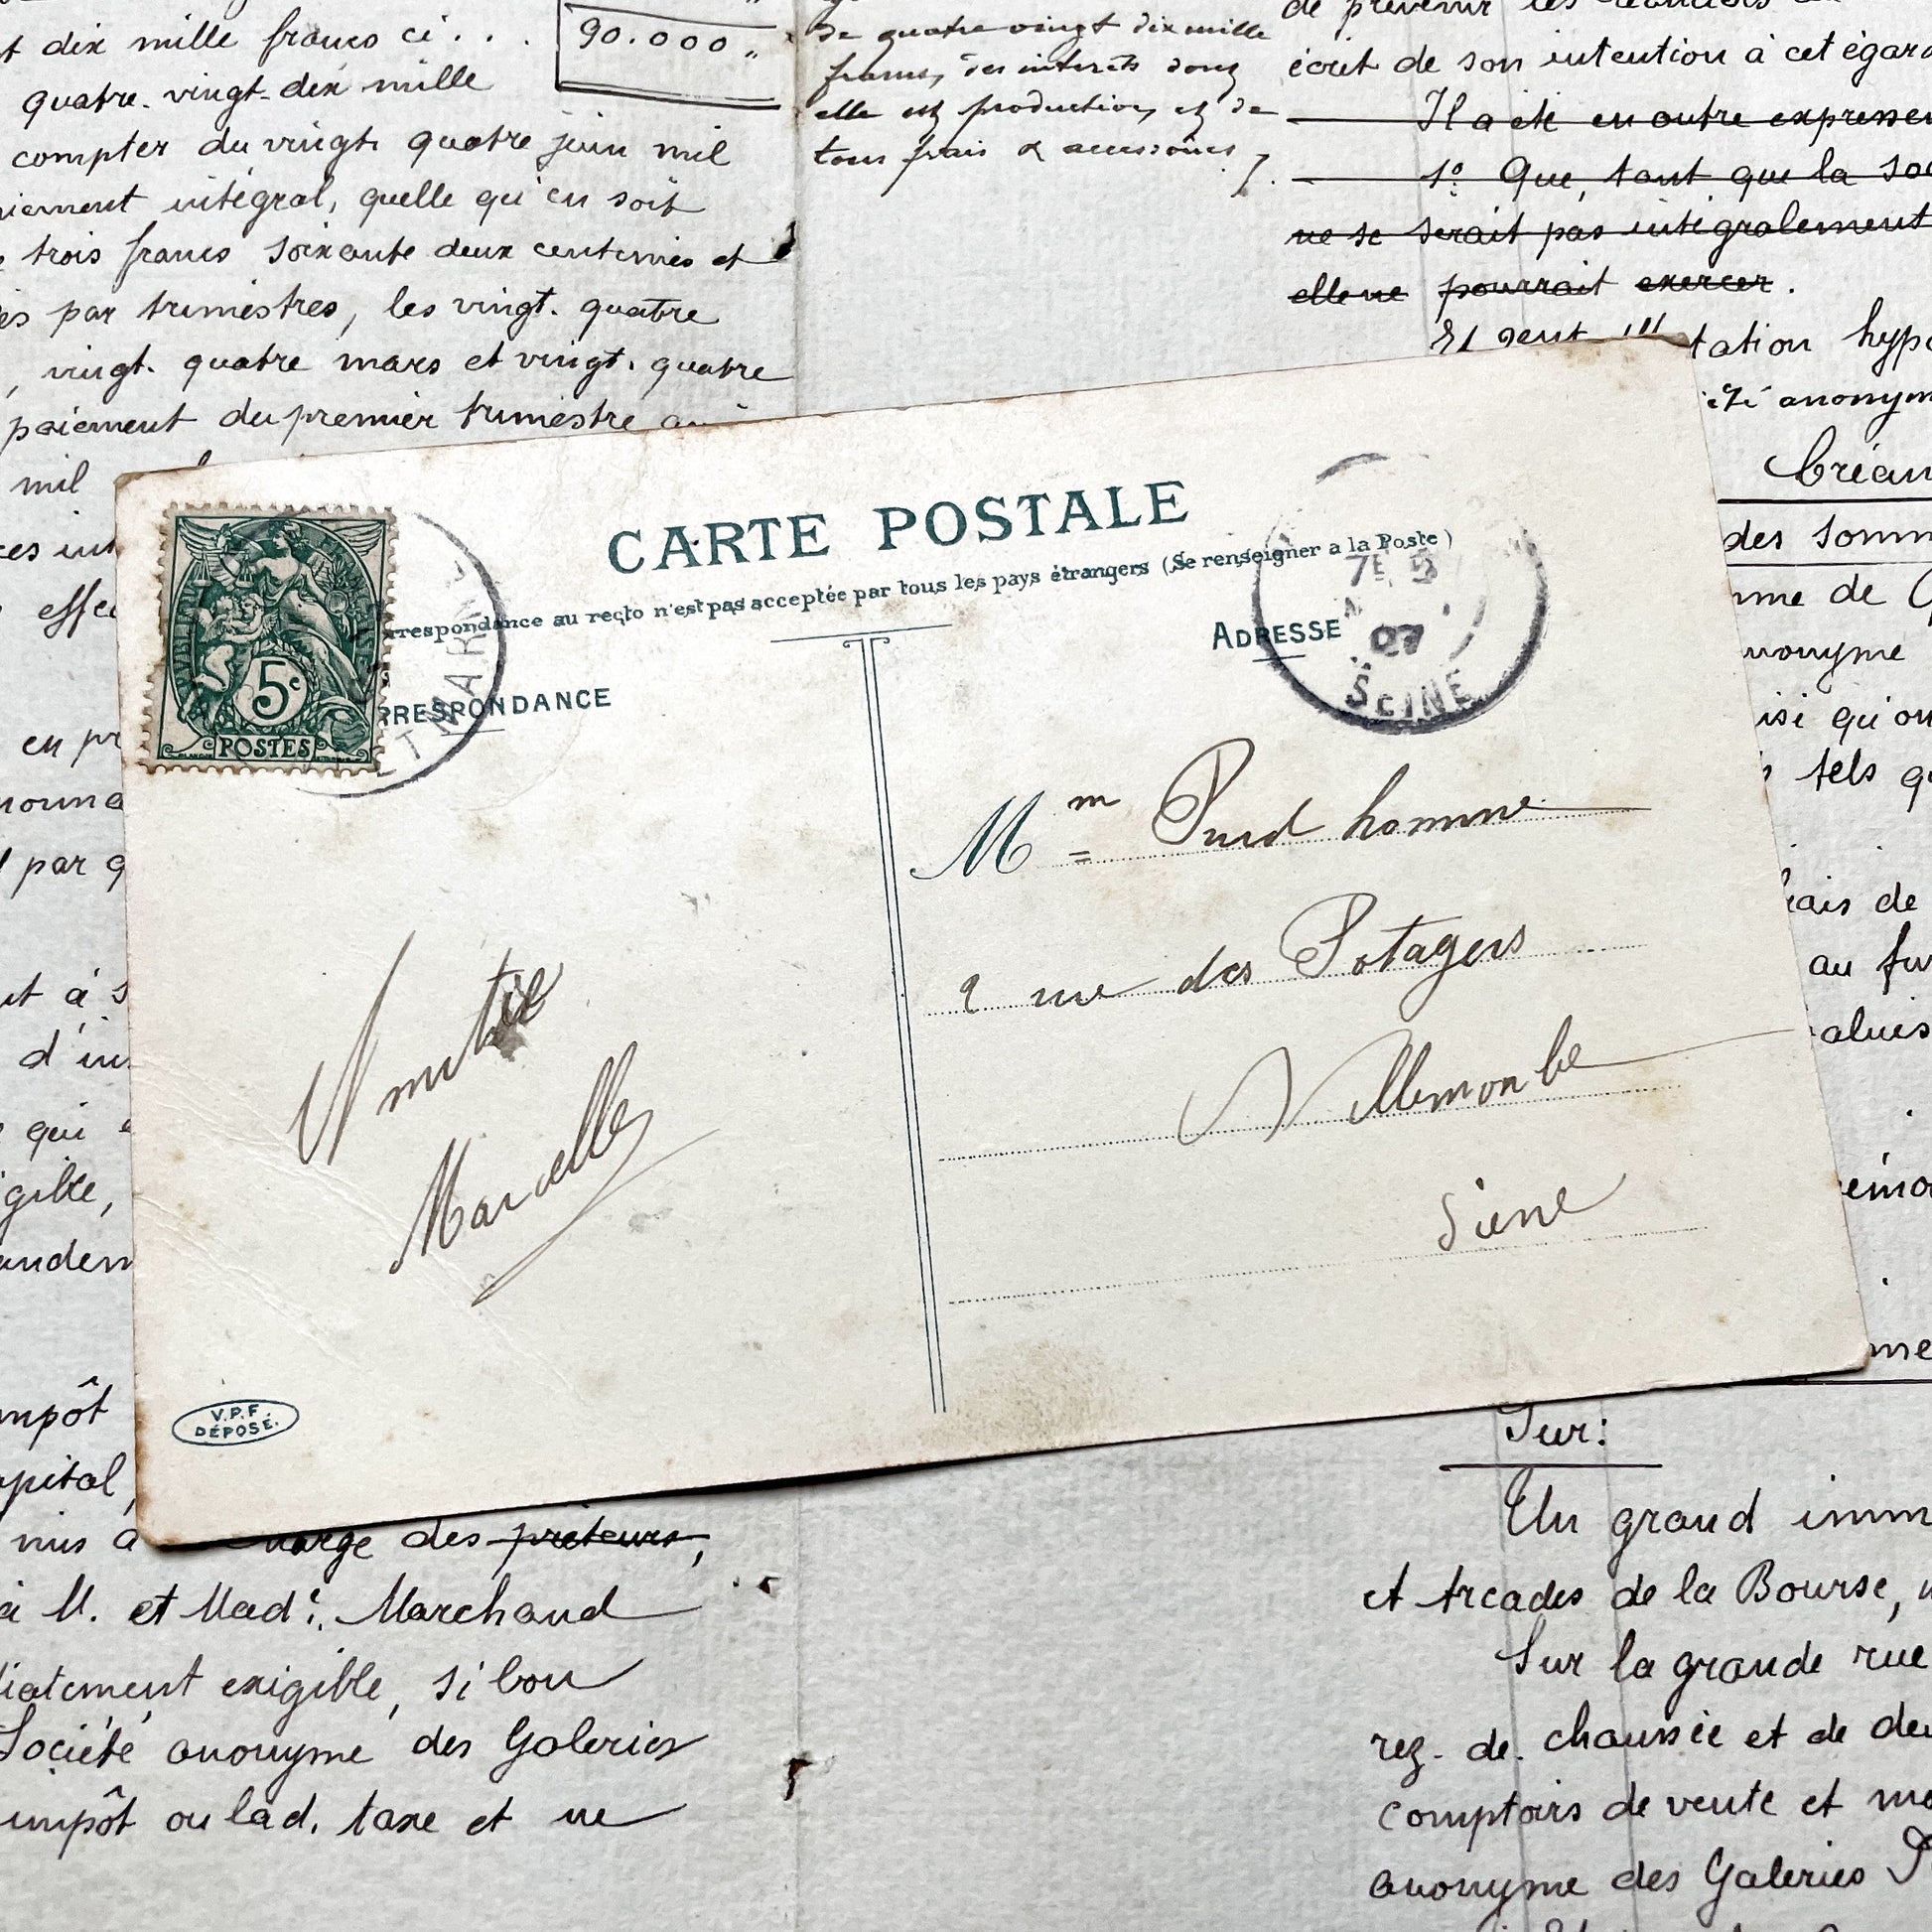 t dix mille francs ci . . .
90.000 "
quatre-vingt-dix mille
compter du vingt quatre juin mil
iement intégral, quelle qu'en soit
trois francs soixante deux centimes et
es par trimestres, les vingt-quatre
, vingt-quatre mars et vingt-quatre
paiement du premier trimestre au
mil
effe
en pr
par q
t à s
d'in
qui
gible,
mpôt
apital,
mis à charge des prêteurs,
à M. et Mad.e Marchand
diatement exigible, si bon
Société anonyme des Galeries
impôt ou lad. taxe et ne
de quatre vingt dix mille
francs, des intérêts dont
elle est production, et de
tous frais & accessoires ./.
de prévenir les
écrit de son intention à cet égard
Il a été en outre expressém
1º Que, tant que la soc
ne se serait pas intégralement
elle ne pourrait exercer.
tation hypo
anonym
Créan
des somm
me de
anonyme
isi qu'on
tels qu
ais de
au fur
CARTE POSTALE
rrespondance au recto n'est pas acceptée par tous les pays étrangers (Se renseigner a la Poste)
RRESPONDANCE
ADRESSE
5c
POSTES
MARNE
7E
07
SEINE
Mm Prud homme
2 rue des Potagers
Villemomble
Siene
Amitié
Marcelle
V.P.F.
DÉPOSÉ.
Sur:
Un grand imm
et Arcades de la Bourse,
Sur la grande rue
rez-de-chaussée et de de
comptoirs de vente et ma
anonyme des Galeries